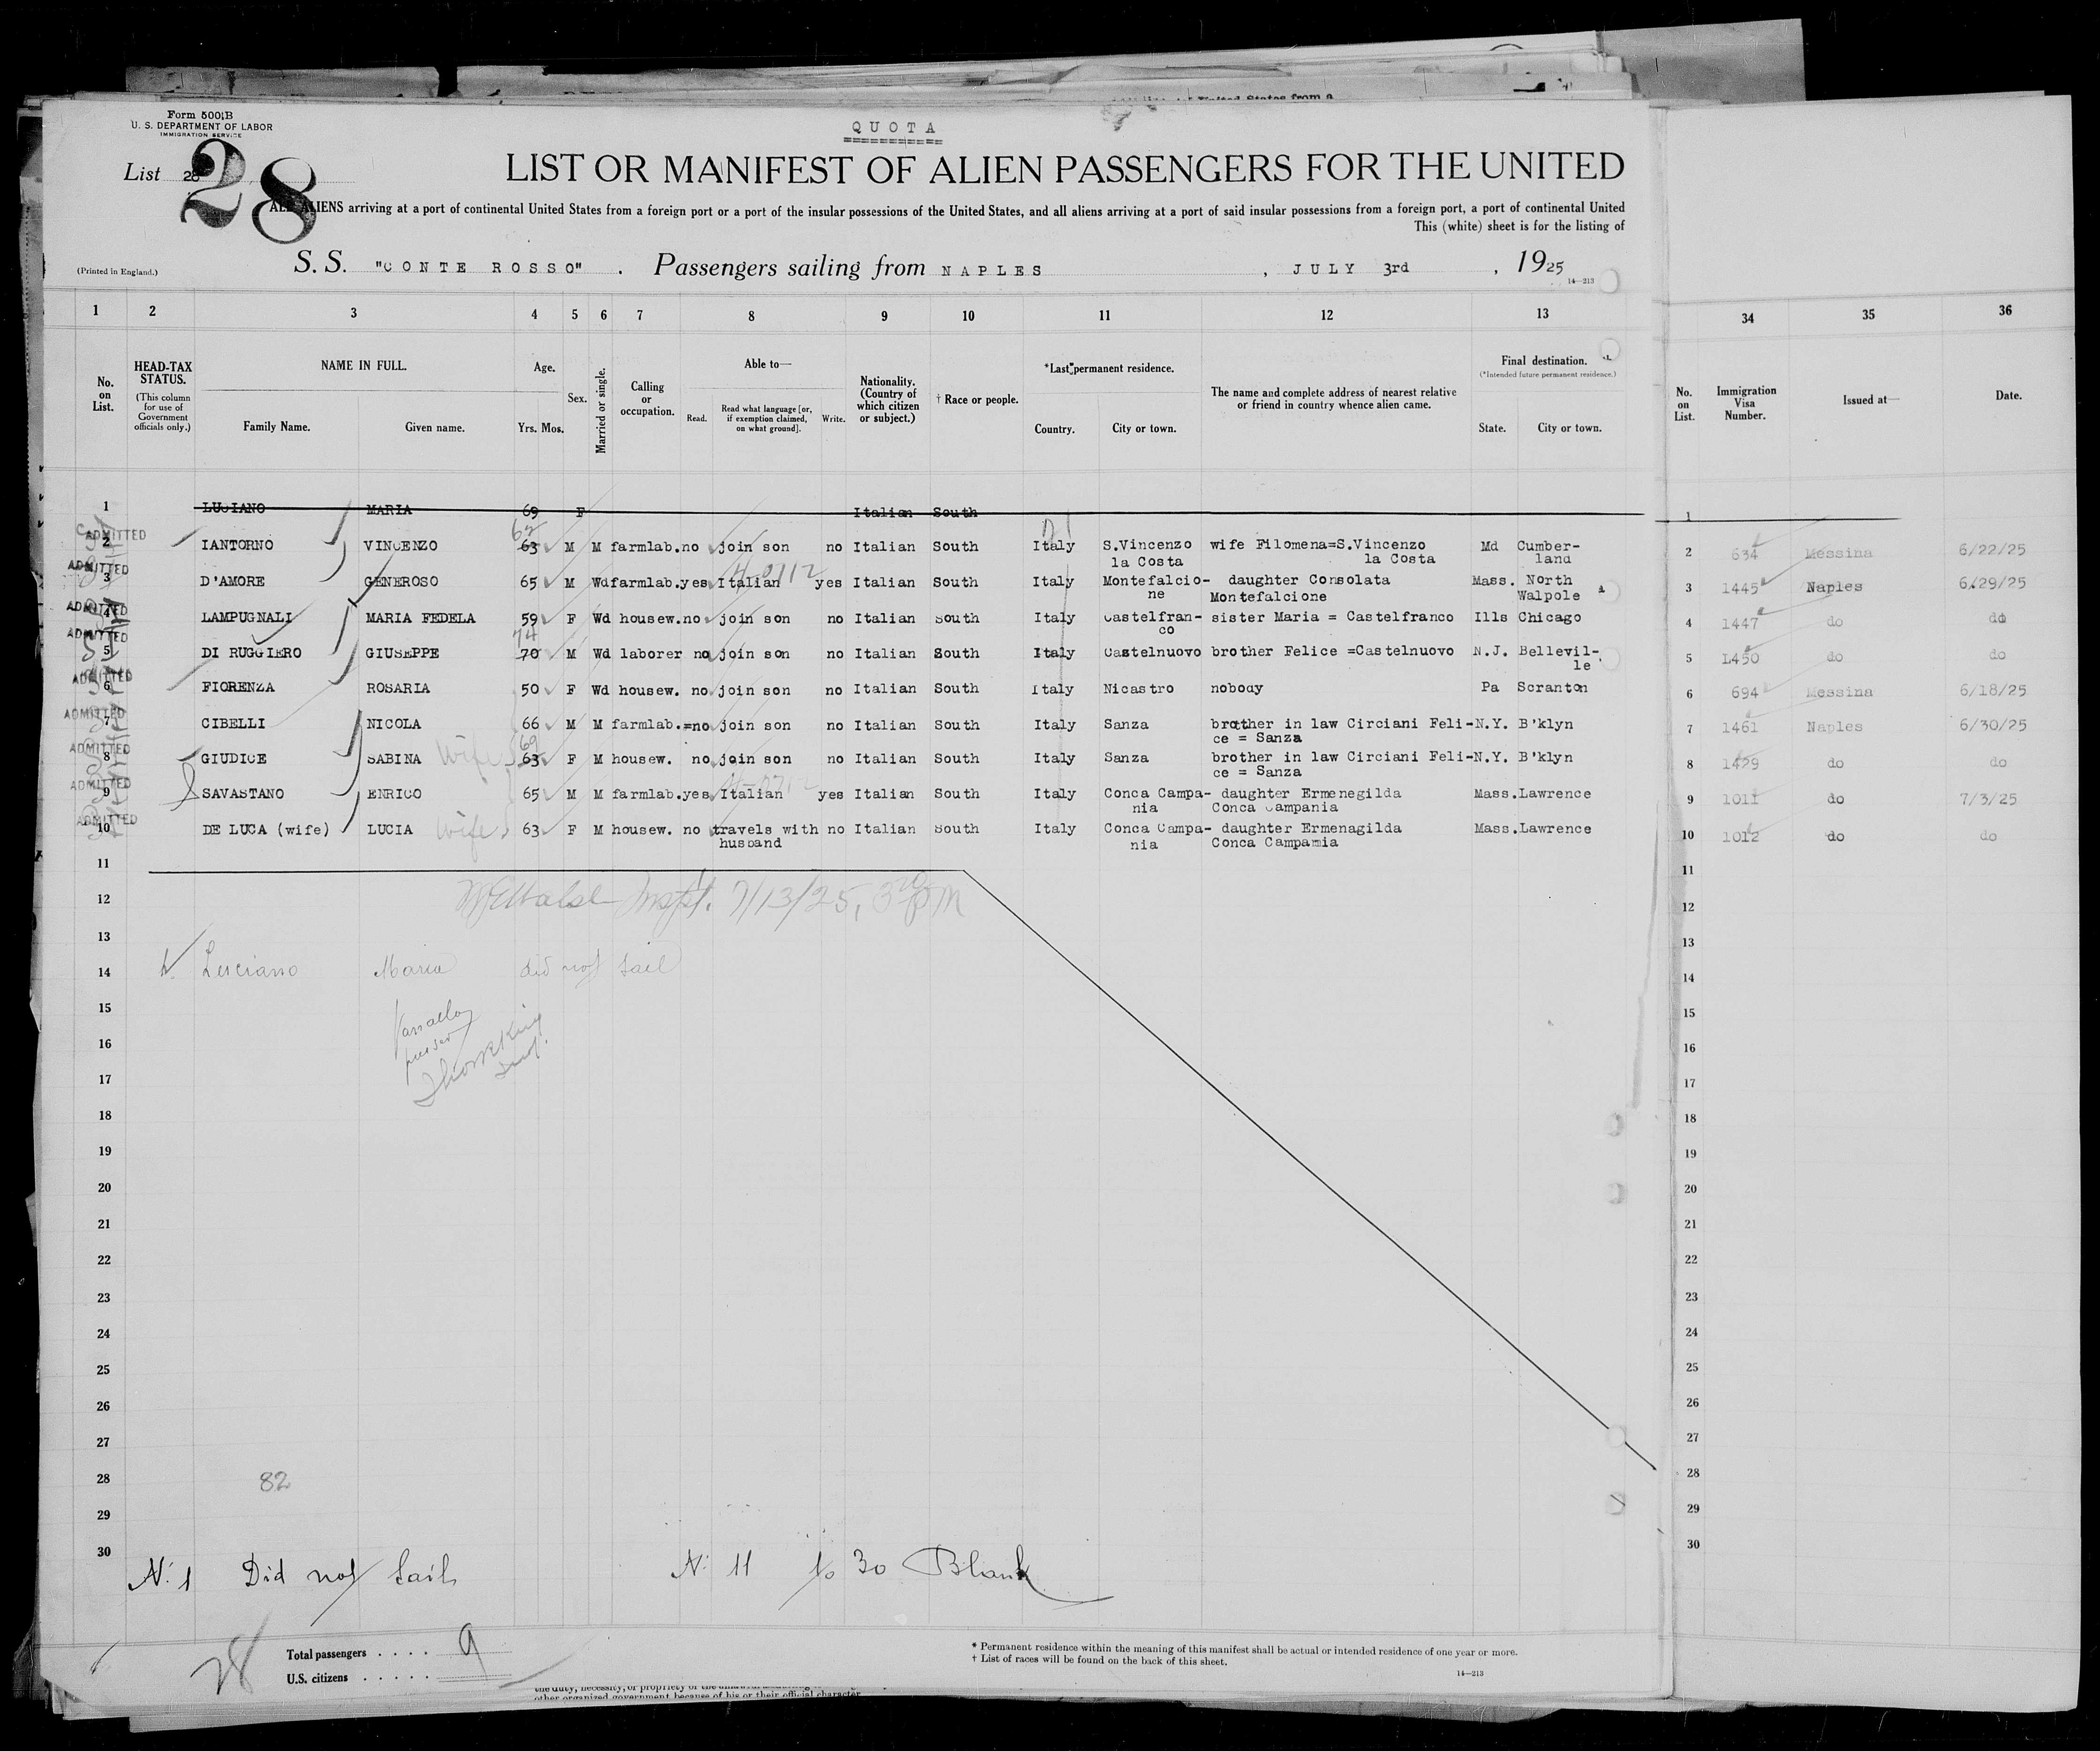 Form 500 B
U. S. DEPARTMENT OF LABOR
IMMIGRATION SERVICE
QUOTA
List 28
28
LIST OR MANIFEST OF ALIEN PASSENGERS FOR THE UNITED
ALL ALIENS arriving at a port of continental United States from a foreign port or a port of the insular possessions of the United States, and all aliens arriving at a port of said insular possessions from a foreign port, a port of continental United
This (white) sheet is for the listing of
(Printed in England.) S. S. "CONTE ROSSO" . Passengers sailing from NAPLES , JULY 3rd , 1925
14—213
1 2 3 4 5 6 7 8 9 10 11 12 13 34 35 36
No. on List. HEAD-TAX STATUS. (This column for use of Government officials only.) NAME IN FULL. Family Name. Given name. Age. Yrs. Mos. Sex. Married or single. Calling or occupation. Able to— Read. Read what language [or, if exemption claimed, on what ground]. Write. Nationality. (Country of which citizen or subject.) † Race or people. *Last permanent residence. Country. City or town. The name and complete address of nearest relative or friend in country whence alien came. Final destination. (*Intended future permanent residence.) State. City or town. No. on List. Immigration Visa Number. Issued at— Date.
1 LUCIANO MARIA 69 F Italian South 1
62
ADMITTED 2 IANTORNO VINCENZO 63 M M farmlab. no join son no Italian South Italy S.Vincenzo la Costa wife Filomena=S.Vincenzo la Costa Md Cumber-land 2 634 Messina 6/22/25
ADMITTED 3 D'AMORE GENEROSO 65 M Wd farmlab. yes Italian yes Italian South Italy Montefalcio-ne daughter Consolata Montefalcione Mass. North Walpole 3 1445 Naples 6/29/25
ADMITTED 4 LAMPUGNALI MARIA FEDELA 59 F Wd housew. no join son no Italian South Italy Castelfran-co sister Maria = Castelfranco Ills Chicago 4 1447 do do
74
ADMITTED 5 DI RUGGIERO GIUSEPPE 70 M Wd laborer no join son no Italian South Italy Castelnuovo brother Felice =Castelnuovo N.J. Bellevil-le 5 1450 do do
ADMITTED 6 FIORENZA ROSARIA 50 F Wd housew. no join son no Italian South Italy Nicastro nobody Pa Scranton 6 694 Messina 6/18/25
ADMITTED 7 CIBELLI NICOLA 66 M M farmlab.=no join son no Italian South Italy Sanza brother in law Circiani Feli-ce = Sanza N.Y. B'klyn 7 1461 Naples 6/30/25
69
ADMITTED 8 GIUDICE SABINA Wife 63 F M housew. no join son no Italian South Italy Sanza brother in law Circiani Feli-ce = Sanza N.Y. B'klyn 8 1429 do do
ADMITTED 9 SAVASTANO ENRICO 65 M M farmlab. yes Italian yes Italian South Italy Conca Campa-nia daughter Ermenegilda Conca Campania Mass. Lawrence 9 1011 do 7/3/25
ADMITTED 10 DE LUCA (wife) LUCIA Wife 63 F M housew. no travels with husband no Italian South Italy Conca Campa-nia daughter Ermenagilda Conca Campamia Mass. Lawrence 10 1012 do do
11 11
12 Inspt. 7/13/25, 3 20 PM 12
13 13
14 Luciano Maria did not sail 14
15 15
16 purser 16
17 17
18 18
19 19
20 20
21 21
22 22
23 23
24 24
25 25
26 26
27 27
28 82 28
29 29
30 30
N: 1 Did not Sail N: 11 to 30 Blank
28
Total passengers . . . . 9
U.S. citizens . . . . .
* Permanent residence within the meaning of this manifest shall be actual or intended residence of one year or more.
† List of races will be found on the back of this sheet.
14—213